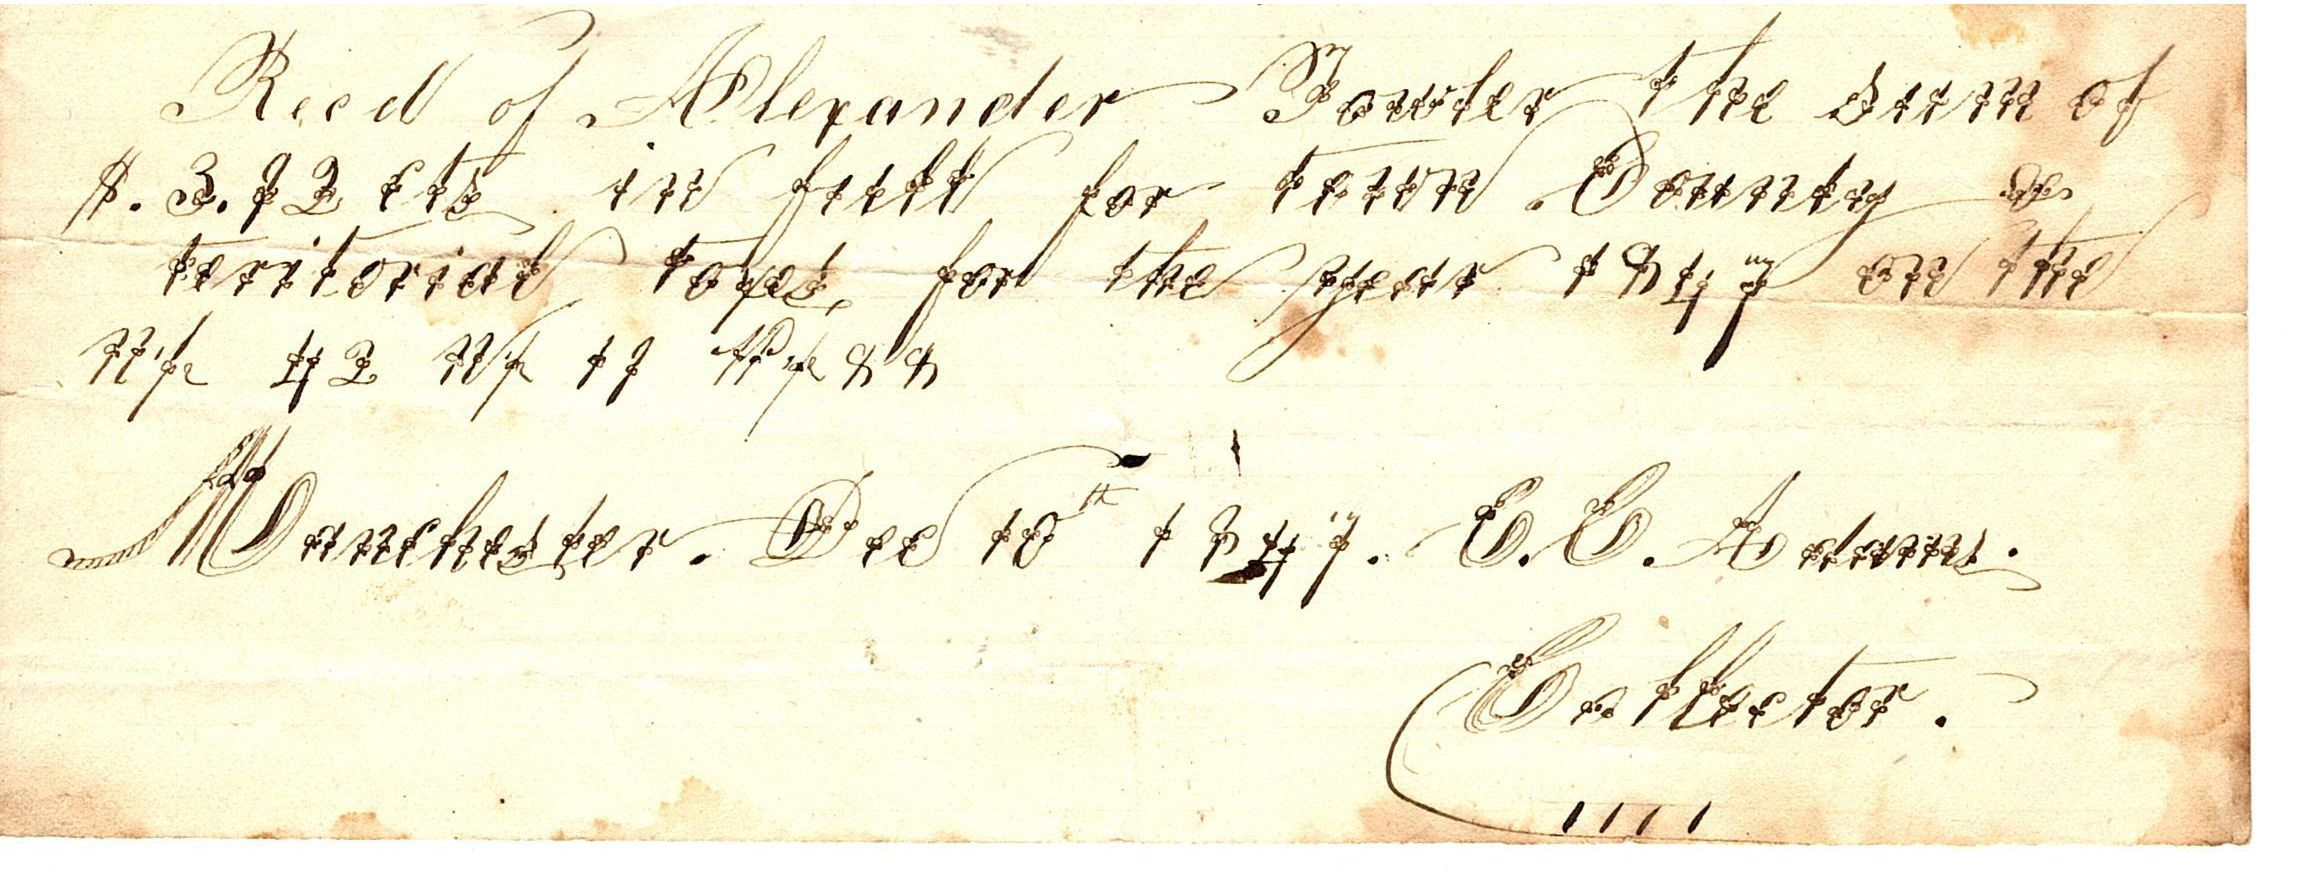 Recd of Alexander Fowler the sum of
$. 3.92 cts in full for town County &
territorial taxes for the year 1847 on the
42 88
Manchester. Dec 10th 1847. C. C. Adams.
Collector.